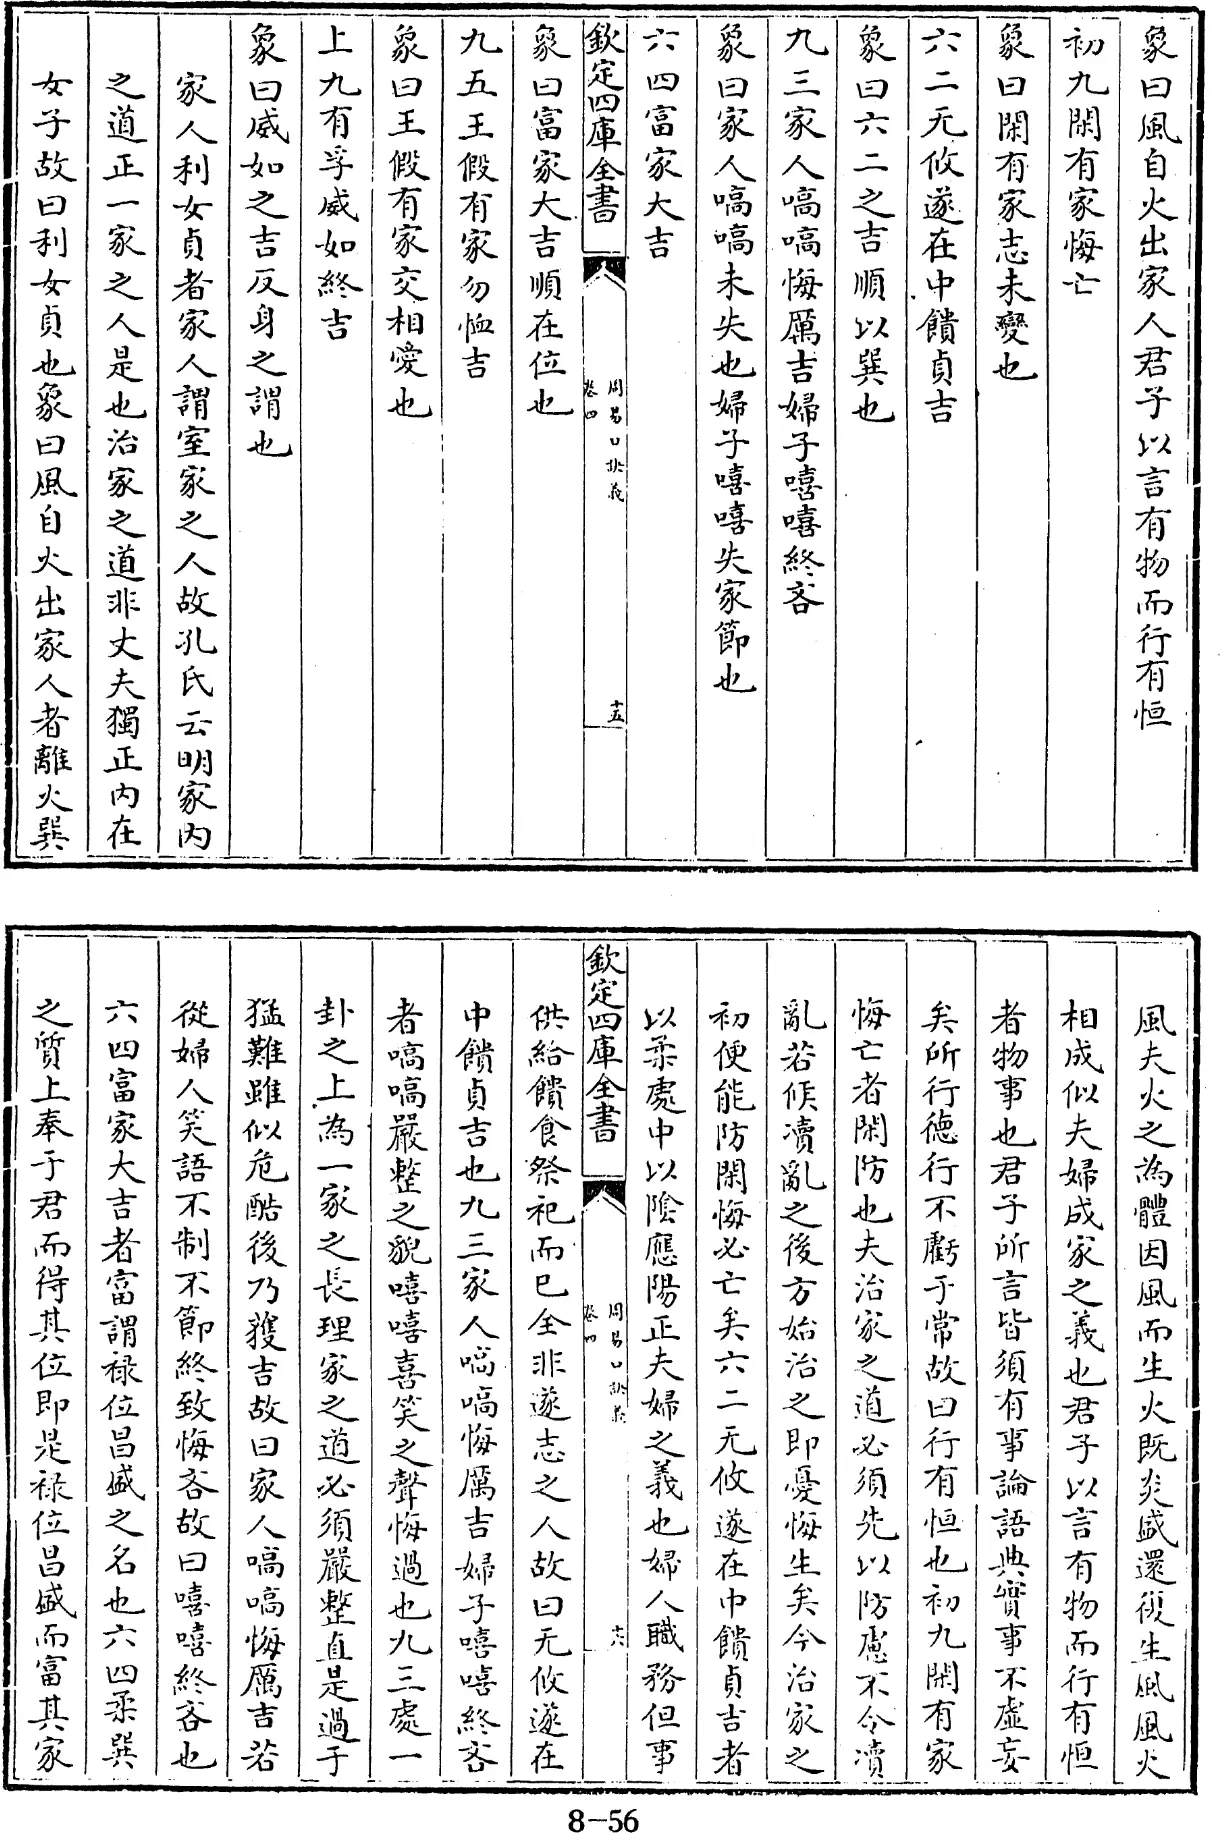 象曰風自火出家人君子以言有物而行有恒
初九閑有家悔亡
象曰閑有家志未變也
六二无攸遂在中饋貞吉
象曰六二之吉順以巽也
九三家人嗃嗃悔厲吉婦子嘻嘻終吝
象曰家人嗃嗃未失也婦子嘻嘻失家節也
六四富家大吉
欽定四庫全書
周易口訣義
卷四
十五
象曰富家大吉順在位也
九五王假有家勿恤吉
象曰王假有家交相愛也
上九有孚威如終吉
象曰威如之吉反身之謂也
家人利女貞者家人謂室家之人故孔氏云明家內
之道正一家之人是也治家之道非丈夫獨正內在
女子故曰利女貞也象曰風自火出家人者離火巽
風夫火之為體因風而生火既炎盛還復生風風火
相成似夫婦成家之義也君子以言有物而行有恒
者物事也君子所言皆須有事論語典實事不虛妄
矣所行德行不虧于常故曰行有恒也初九閑有家
悔亡者閑防也夫治家之道必須先以防慮不令瀆
亂若候瀆亂之後方始治之即憂悔生矣今治家之
初便能防閑悔必亡矣六二无攸遂在中饋貞吉者
以柔處中以陰應陽正夫婦之義也婦人職務但事
欽定四庫全書
周易口訣義
卷四
十六
供給饋食祭祀而已全非遂志之人故曰无攸遂在
中饋貞吉也九三家人嗃嗃悔厲吉婦子嘻嘻終吝
者嗃嗃嚴整之貌嘻嘻喜笑之聲悔過也九三處一
卦之上為一家之長理家之道必須嚴整直是過于
猛難雖似危酷後乃獲吉故曰家人嗃嗃悔厲吉若
從婦人笑語不制不節終致悔吝故曰嘻嘻終吝也
六四富家大吉者富謂祿位昌盛之名也六四柔巽
之質上奉于君而得其位即是祿位昌盛而富其家
8-56